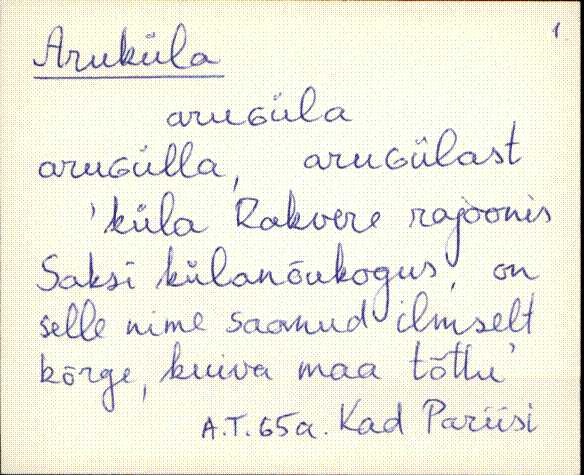 1
Aruküla
aruɢüla
aruɢülla, aruɢülast
'küla Rakvere rajoonis
Saksi külanõukogus, on
selle nime saanud ilmselt
kõrge, kuiva maa tõttu'
A.T. 65a. Kad Pariisi